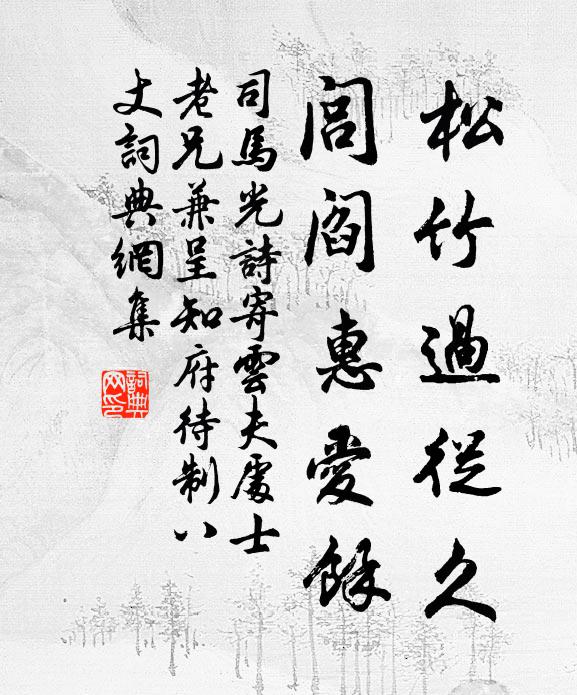 松竹過從久
閭閻惠愛餘
司馬光詩寄雲夫處士
老兄兼呈知府待制八
丈詞典網集
詞典
网印